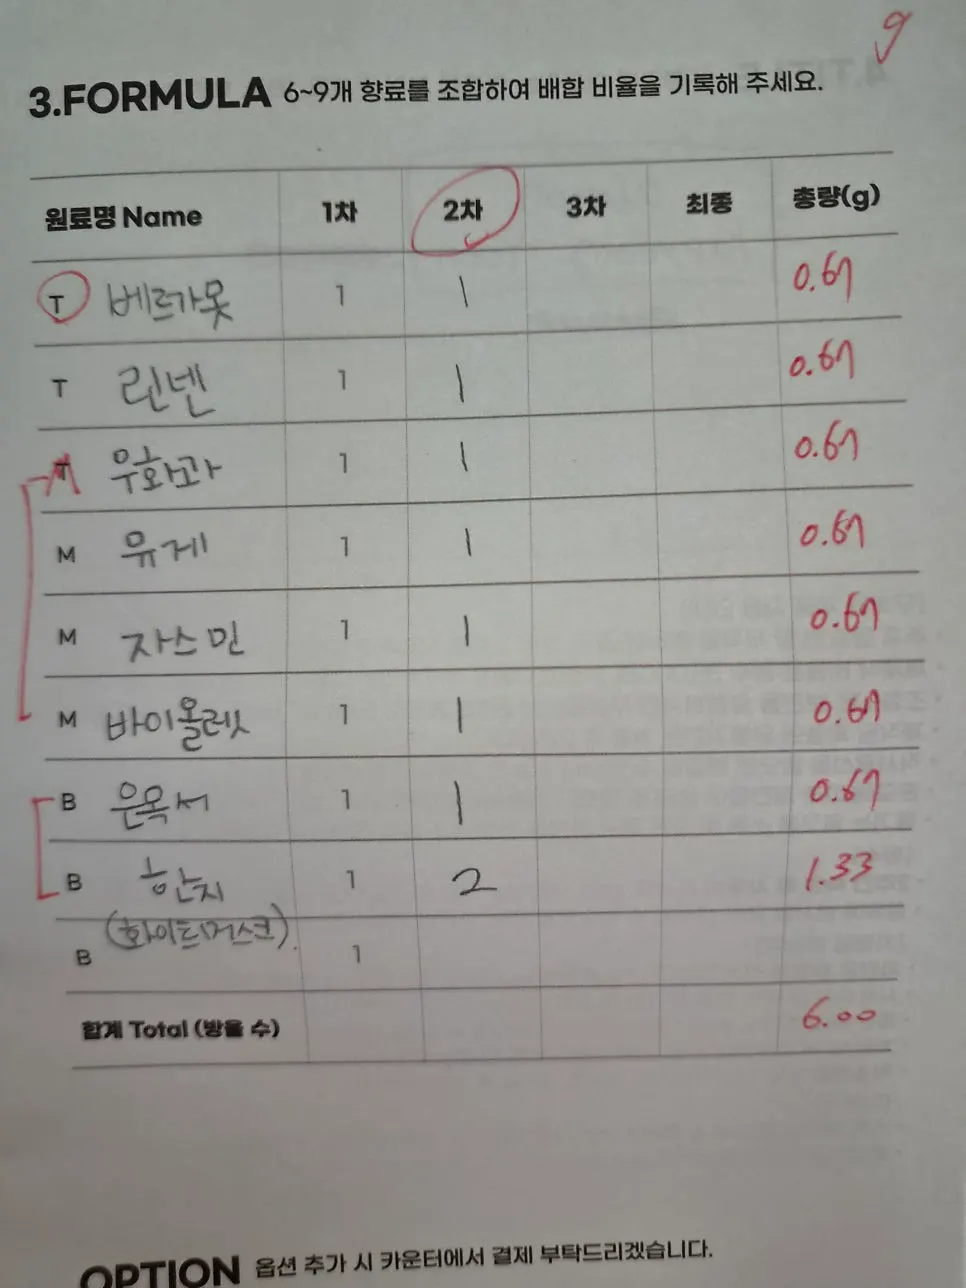 9
3.FORMULA 6~9개 향료를 조합하여 배합 비율을 기록해 주세요.
원료명 Name 1차 2차 3차 최종 총량(g)
T 베르가못 1 1 0.67
T 린넨 1 1 0.67
무화과 1 1 0.67
M 유게 1 1 0.67
M 자스민 1 1 0.67
M 바이올렛 1 1 0.67
B 은목서 1 1 0.67
B 한지 1 2 1.33
(화이트머스크)
B 1
합계 Total (방울 수) 6.00
OPTION 옵션 추가 시 카운터에서 결제 부탁드리겠습니다.